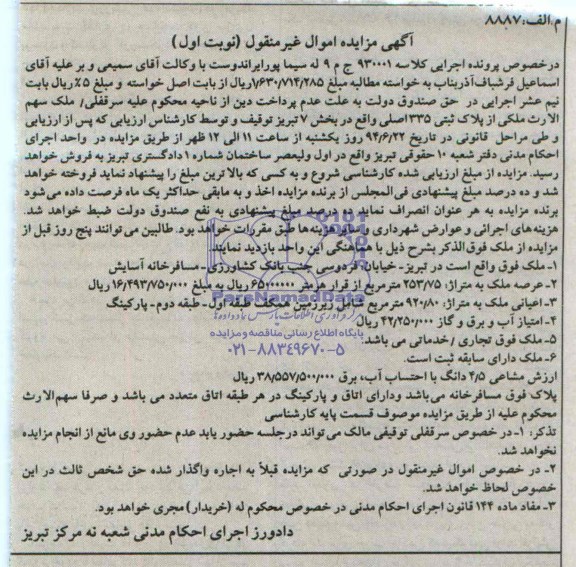 م.الف: ۸۸۸۷
آگهی مزایده اموال غیرمنقول (نوبت اول)
درخصوص پرونده اجرایی کلاسه ۹۳۰۰۰۱ ج م ۹ له سیما پورایراندوست با وکالت آقای سمیعی و بر علیه آقای
اسماعیل فرشباف‌آذربناب به خواسته مطالبه مبلغ ۷/۶۳۰/۷۱۴/۲۸۵ریال از بابت اصل خواسته و مبلغ ۵٪ریال بابت
نیم عشر اجرایی در حق صندوق دولت به علت عدم پرداخت دین از ناحیه محکوم علیه سرقفلی/ ملک سهم
الارث ملکی از پلاک ثبتی ۳۳۵اصلی واقع در بخش ۷ تبریز توقیف و توسط کارشناس ارزیابی که پس از ارزیابی
و طی مراحل قانونی در تاریخ ۹۴/۶/۲۲ روز یکشنبه از ساعت ۱۱ الی ۱۲ ظهر از طریق مزایده در واحد اجرای
احکام مدنی دفتر شعبه ۱۰ حقوقی تبریز واقع در اول ولیعصر ساختمان شماره ۱دادگستری تبریز به فروش خواهد
رسید. مزایده از مبلغ ارزیابی شده کارشناسی شروع و به کسی که بالاترین مبلغ را پیشنهاد نماید فروخته خواهد
شد و ده درصد مبلغ پیشنهادی فی‌المجلس از برنده مزایده اخذ و به مابقی حداکثر یک ماه فرصت داده می‌شود
برنده مزایده به هر عنوان انصراف نماید ده درصد مبلغ پیشنهادی به نفع صندوق دولت ضبط خواهد شد.
هزینه‌های اجرائی و عوارض شهرداری و سایر هزینه‌ها طبق مقررات خواهد بود. طالبین می‌توانند پنج روز قبل از
مزایده از ملک فوق‌الذکر بشرح ذیل با هماهنگی این واحد بازدید نمایند.
۱- ملک فوق واقع است در تبریز- خیابان فردوسی جنب بانک کشاورزی- مسافرخانه آسایش
۲- عرصه ملک به متراژ: ۲۵۳/۷۵ مترمربع از قرار هرمتر ۶۵۰۰۰۰۰۰ ریال به مبلغ ۱۶/۴۹۳/۷۵۰/۰۰۰ریال
۳- اعیانی ملک به متراژ: ۹۲۰/۸۰ مترمربع شامل زیرزمین همکف طبقه اول- طبقه دوم- پارکینگ
۴- امتیاز آب و برق و گاز ۴۲/۲۵۰/۰۰۰ ریال
۵- ملک فوق تجاری / خدماتی می باشد.
۶- ملک دارای سابقه ثبت است.
ارزش مشاعی ۴/۵ دانگ با احتساب آب، برق ۳۸/۵۵۷/۵۰۰/۰۰۰ ریال
پلاک فوق مسافرخانه می‌باشد ودارای اتاق و پارکینگ در هر طبقه اتاق متعدد می باشد و صرفا سهم‌الارث
محکوم علیه از طریق مزایده موصوف قسمت پایه کارشناسی
تذکر: ۱-در خصوص سرقفلی توقیفی مالک می‌تواند درجلسه حضور یابد عدم حضور وی مانع از انجام مزایده
نخواهد شد.
۲- در خصوص اموال غیرمنقول در صورتی که مزایده قبلاً به اجاره واگذار شده حق شخص ثالث در این
خصوص لحاظ خواهد شد.
۳- مفاد ماده ۱۴۴ قانون اجرای احکام مدنی در خصوص محکوم له (خریدار) مجری خواهد بود.
دادورز اجرای احکام مدنی شعبه نه مرکز تبریز
ParsNamadData
پایگاه اطلاع رسانی مناقصه و مزایده
۰۲۱-۸۸۳۴۹۶۷۰-۵